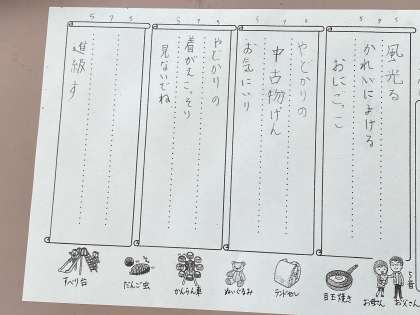 5 7 5
風光る
かれいによける
おにごっこ
5 7 5
やどかりの
中古物けん
お気にいり
5 7 5
やどかりの
着がえこっそり
見ないでね
5 7 5
進級す
すべり台
だんご虫
かんらん車
ぬいぐるみ
ランドセル
目玉焼き
お母さん
お父さん